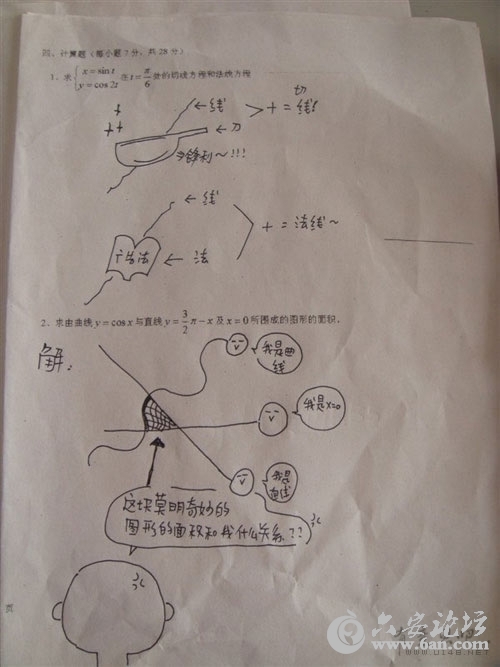 四、计算题（每小题7分，共28分）
1. 求 { x = sin t y = cos 2t 在 t = π/6 处的切线方程和法线方程
← 线
← 刀
锋利～!!!
+ = 切线!
← 线
← 法
+ = 法线～
2、求由曲线 y = cos x 与直线 y = 3/2 π - x 及 x = 0 所围成的图形的面积.
解:
我是曲
线
我是x=0
我是
直线
这块莫明奇妙的
图形的面积和我什么关系??
页
六安论坛
www.6an.com